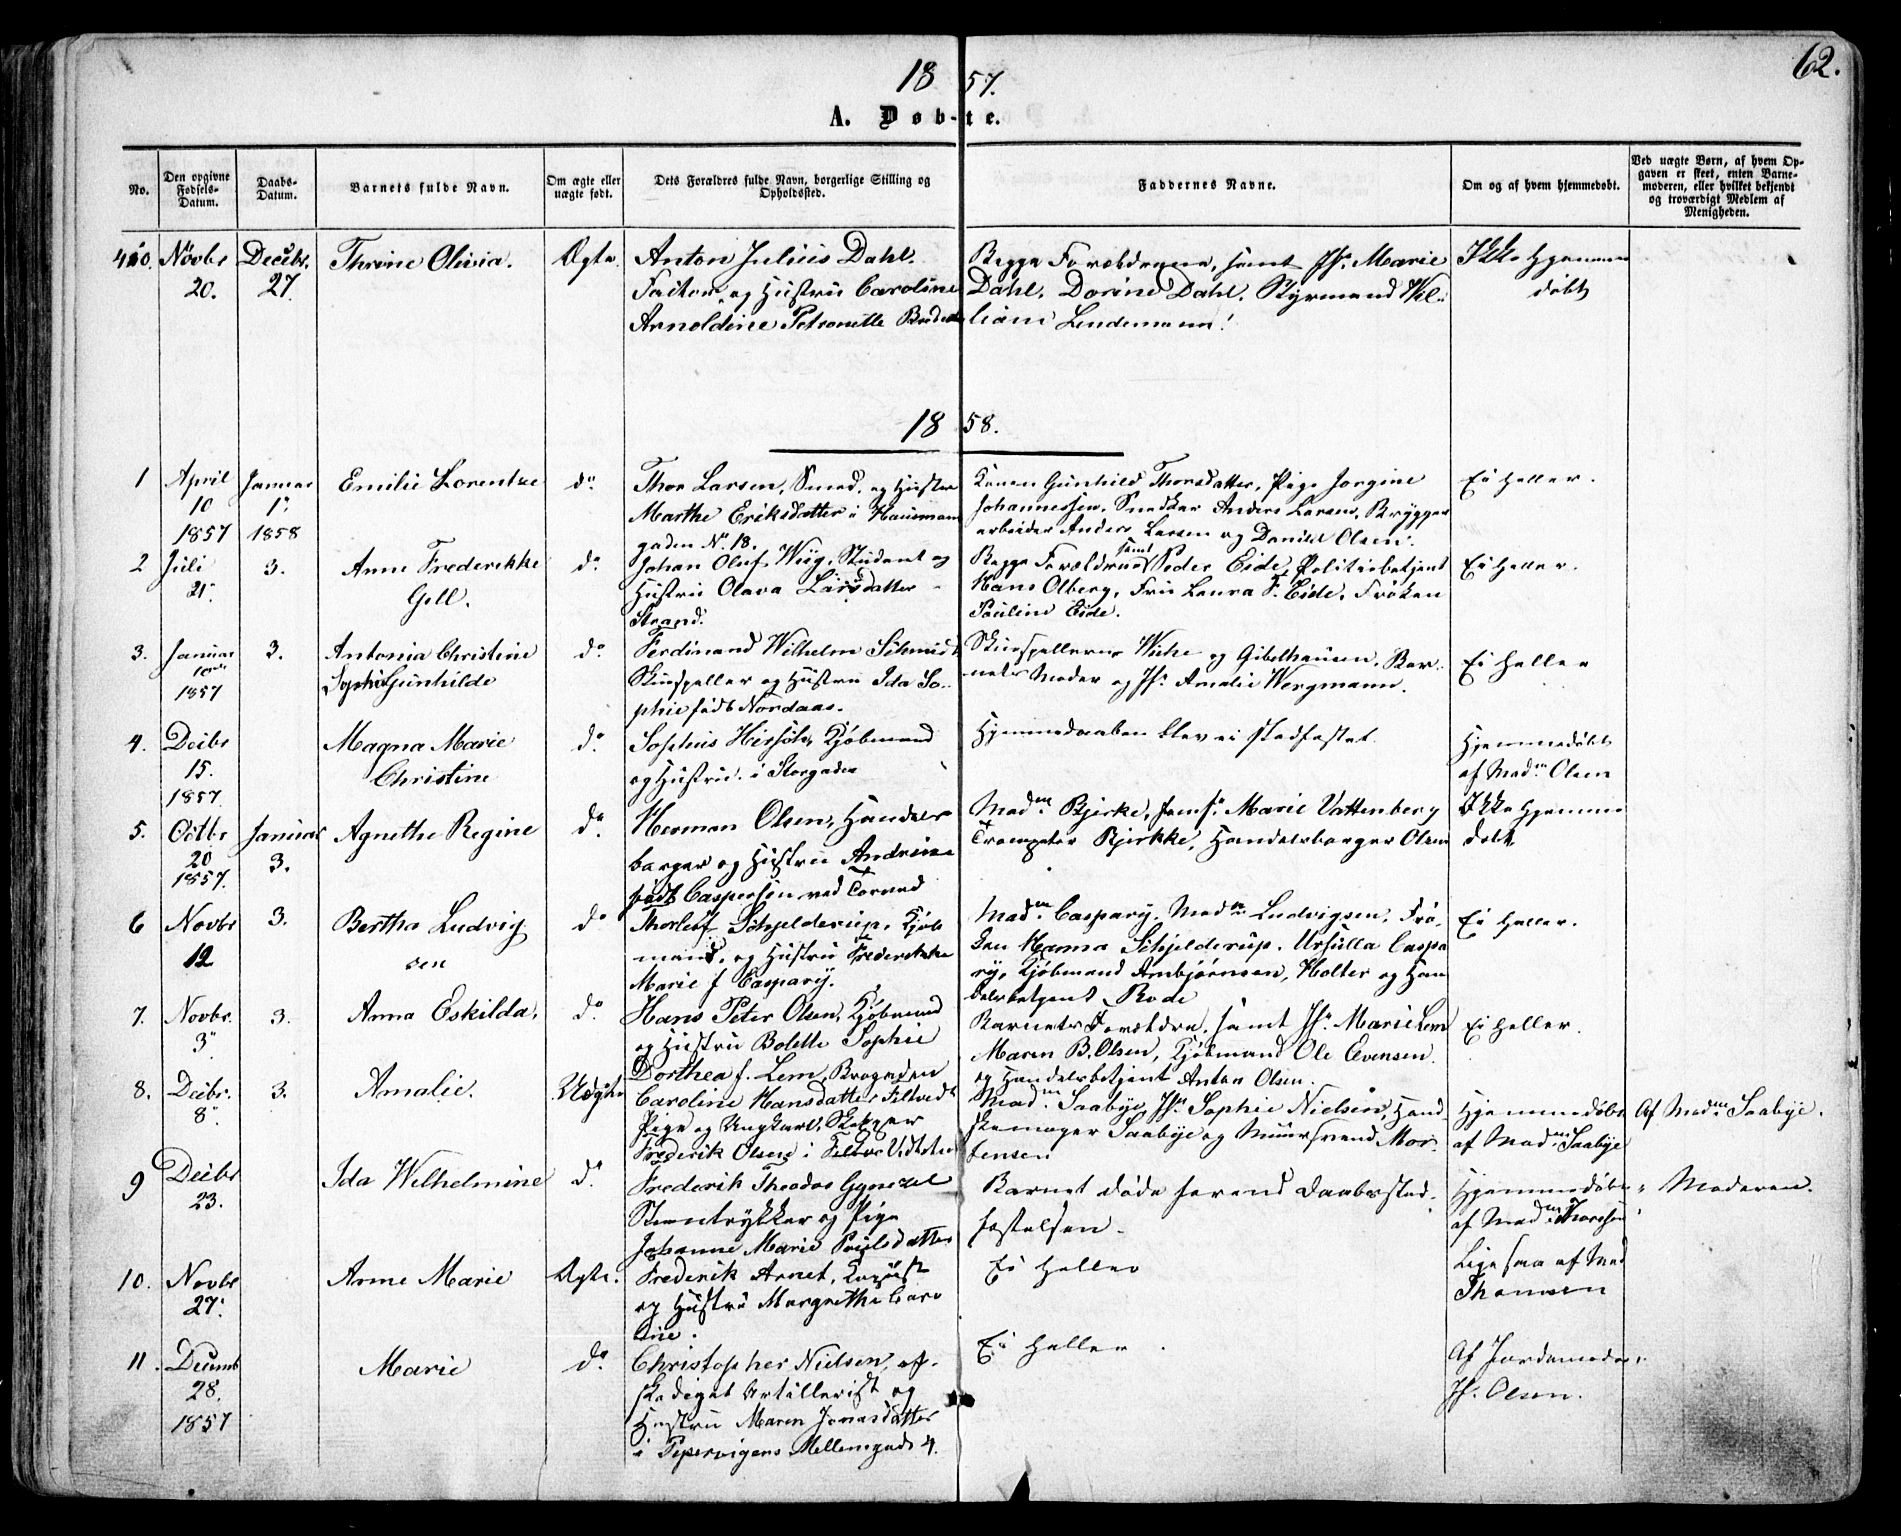 62.
1857.
A. Døb-te.
No.
Den opgivne Fødsels-Datum.
Daabs-Datum.
Barnets fulde Navn.
Om ægte eller uægte født.
Dets Forældres fulde Navn, borgerlige Stilling og Opholdssted.
Faddernes Navne.
Om og af hvem hjemmedøbt.
Ved uægte Børn, af hvem Opgaven er skeet, enten Barnemoderen, eller hvilket bekjendt og troværdigt Medlem af Menigheden.
Novbr 20.
Decbr. 27.
Thrine Olivia.
Ægte
Anton Julius Dahl.
og Hustru Caroline
Arnoldine Petronelle
Begge Forældrene, samt Jfr. Marie
Dahl, Dorine Dahl, Styrmand Wil-
liam Lindemann.
Ikke Hjemme
døbt
1858.
1
April 10 1857
Januar 1. 1858
Emilie Lorentze
do.
Thor Larsen, Smed, og Hustru
Marthe Eriksdatter i Hausmann
gaden No. 18.
Konen Gunhild Thorsdatter, Pige Jorgine
Johannessen, Snedker Anders Larsen, Brygger
arbeider Anders Larsen og Daniel Olsen.
Ei heller.
2
Juli 21.
3.
Anne Frederikke
Gell.
do.
Johan Oluf Wiig, Student og
Hustru Olava Larsdatter
Strand.
Begge Forældrene samt Peder Eide, Politibetjent
Hans Olberg, Fru Laura F. Eide, Frøken
Pauline Eide.
Ei heller.
3.
Januar 10 1857
3.
Antonia Christine
Sophie Gunhilde
do.
Ferdinand Wilhelm Schmidt
Skuespiller og Hustru Ida So-
phie født Nordaas.
Skuespillerne Wiehe og Gibelhausen, Bar-
nets Moder og Jfr. Amalie Wergmann.
Ei heller
4.
Decbr 15. 1857
Magna Marie
Christine
do.
Sophus Hirsch, Kjøbmand
og Hustru. i Storgaden
Hjemmedaaben blev ei stadfæstet.
Hjemmedøbt
af Madm Olsen
5.
Octbr 20 1857.
Januar 3.
Agnethe Regine
do.
Herman Olsen, Handels
borger og Hustru Andrine
født Caspersen ved Torved
Madm. Bjerke, Jomf. Marie Vattenberg
Trompeter Bjerkke, Handelsborger Olsen
Ikke Hjemme
døbt
6
Novbr 12
3.
Bertha Ludvig
sen
do
Thorleif Schjelderup, Kjøb
mand, og Hustru Frederikke
Marie f Caspary.
Madm. Caspary, Madm Ludvigsen, Frø
ken Hanna Schjelderup, Ursulla Caspa
ry, Kjøbmand Arnbjørnsen, Holter og Han
delsbetjent Rode
Ei heller.
7.
Novbr. 3
3.
Anna Eskilda,
do.
Hans Peter Olsen, Kjøbmand
og Hustru Bolette Sophie
Dorthea f. Lem, Brogaden
Barnets Forældre, samt Jfr. Marie Lem
Maren B. Olsen, Kjøbmand Ole Evensen
og Handelsbetjent Anton Olsen.
Ei heller.
8.
Decbr. 8
3.
Amalie.
Uægte
Caroline Hansdatter
Pige og Ungkarl,
Frederik Olsen i
Madm. Saabye, Jfr. Sophie Nielsen, Hand
skemager Saabye og Muursvend Mor-
tensen
Hjemmedøbt
af Madm Saabye
Af Madm. Saabye.
9
Decbr 23.
Ida Wilhelmine
do.
Frederik Theodor
Steentrykker og Pige
Johanne Marie Poulsdatter
Barnet døde førend Daabsstad-
fæstelsen.
Hjemmedøbt
af Madm Thoresen
Moderen.
10.
Novbr 27.
Anne Marie
Ægte.
Frederik Arnet,
og Hustru Margrethe Caro
line.
Ei heller
Ligesaa af Mad
Thomsen
11.
Decemb 28. 1857
Marie
do.
Christopher Nielsen, af-
skediget Artillerist og
Hustru Maren Jonasdatter
i Pipervigens Mellemgade 4.
Ei heller.
Af Jordemoder
Jfr. Olsen.